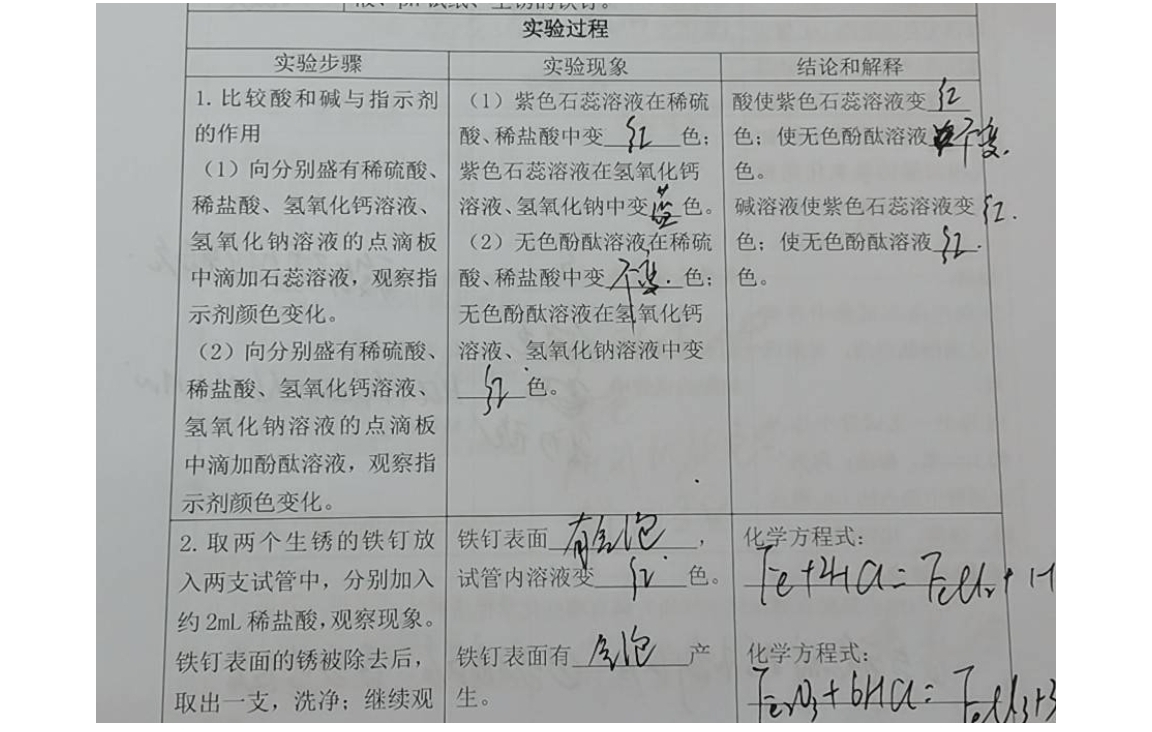 实验过程
实验步骤
实验现象
结论和解释
1. 比较酸和碱与指示剂
的作用
（1）向分别盛有稀硫酸、
稀盐酸、氢氧化钙溶液、
氢氧化钠溶液的点滴板
中滴加石蕊溶液，观察指
示剂颜色变化。
（2）向分别盛有稀硫酸、
稀盐酸、氢氧化钙溶液、
氢氧化钠溶液的点滴板
中滴加酚酞溶液，观察指
示剂颜色变化。
（1）紫色石蕊溶液在稀硫
酸、稀盐酸中变红色；
紫色石蕊溶液在氢氧化钙
溶液、氢氧化钠中变蓝色。
（2）无色酚酞溶液在稀硫
酸、稀盐酸中变不变.色；
无色酚酞溶液在氢氧化钙
溶液、氢氧化钠溶液中变
红色。
酸使紫色石蕊溶液变红
色；使无色酚酞溶液不变.
色。
碱溶液使紫色石蕊溶液变红.
色；使无色酚酞溶液红.
色。
2. 取两个生锈的铁钉放
入两支试管中，分别加入
约 2mL 稀盐酸，观察现象。
铁钉表面的锈被除去后，
取出一支，洗净；继续观
铁钉表面有气泡，
试管内溶液变红色。
铁钉表面有气泡产
生。
化学方程式：
Fe+2HCl=FeCl₂+H
化学方程式：
Fe₂O₃+6HCl=FeCl₃+3